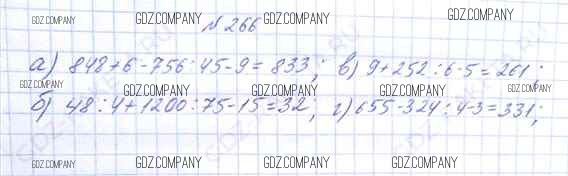 GDZ.COMPANY GDZ.COMPANY GDZ.COMPANY
№ 266
а) 848+6-756:45-9=833; в) 9+252:6-5=261;
GDZ.COMPANY GDZ.COMPANY GDZ.COMPANY GDZ.COMPANY
б) 48:4+1200:75-15=32; г) 655-324:4-3=331;
GDZ.COMPANY GDZ.COMPANY GDZ.COMPANY GDZ.COMPANY